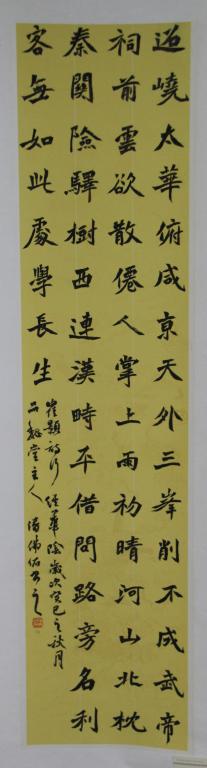 迢嶢太華俯咸京天外三峯削不成武帝
祠前雲欲散僊人掌上雨初晴河山北枕
秦關險驛樹西連漢時平借問路旁名利
客無如此處學長生
崔顥詩行經華陰歲次癸巳之秋月
堂主人 潘偉佑書之